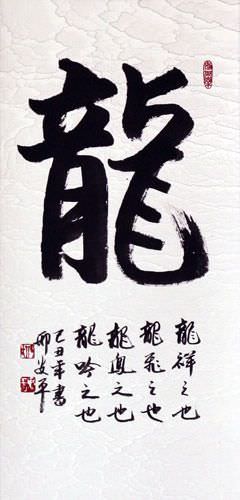 龍
龍祥之也
龍飛之也
龍鳳之也
龍吟之也
己丑年書
邢安平